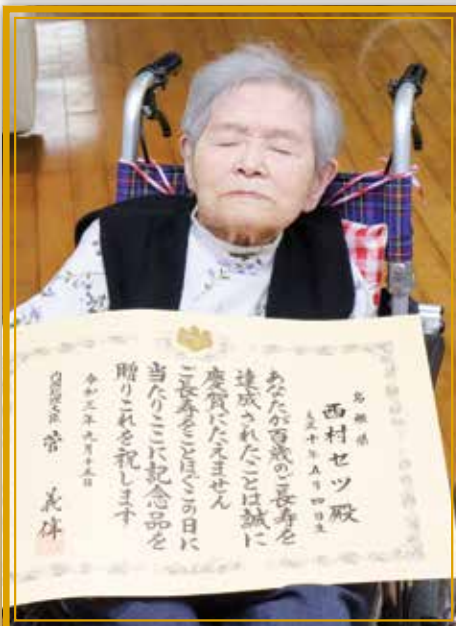 島根県
西村セツ殿
大正十年五月四日生
あなたが百歳のご長寿を
達成されたことは誠に
慶賀にたえません
ご長寿をことほぐこの日に
当たりここに記念品を
贈りこれを祝します
令和三年九月十五日
内閣総理大臣 菅 義偉